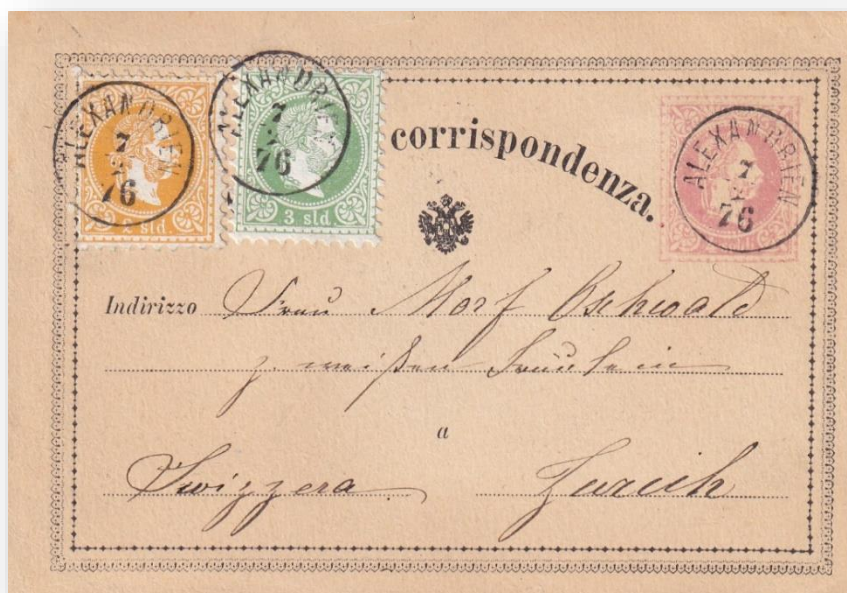 ALEXANDRIEN
7
2
76
2 sld.
ALEXANDRIEN
7
2
76
3 sld.
corrispondenza.
ALEXANDRIEN
7
2
76
Indirizzo Frau Morf Oschwald
z. weißen Fräulein
a
Swizzera Zurich